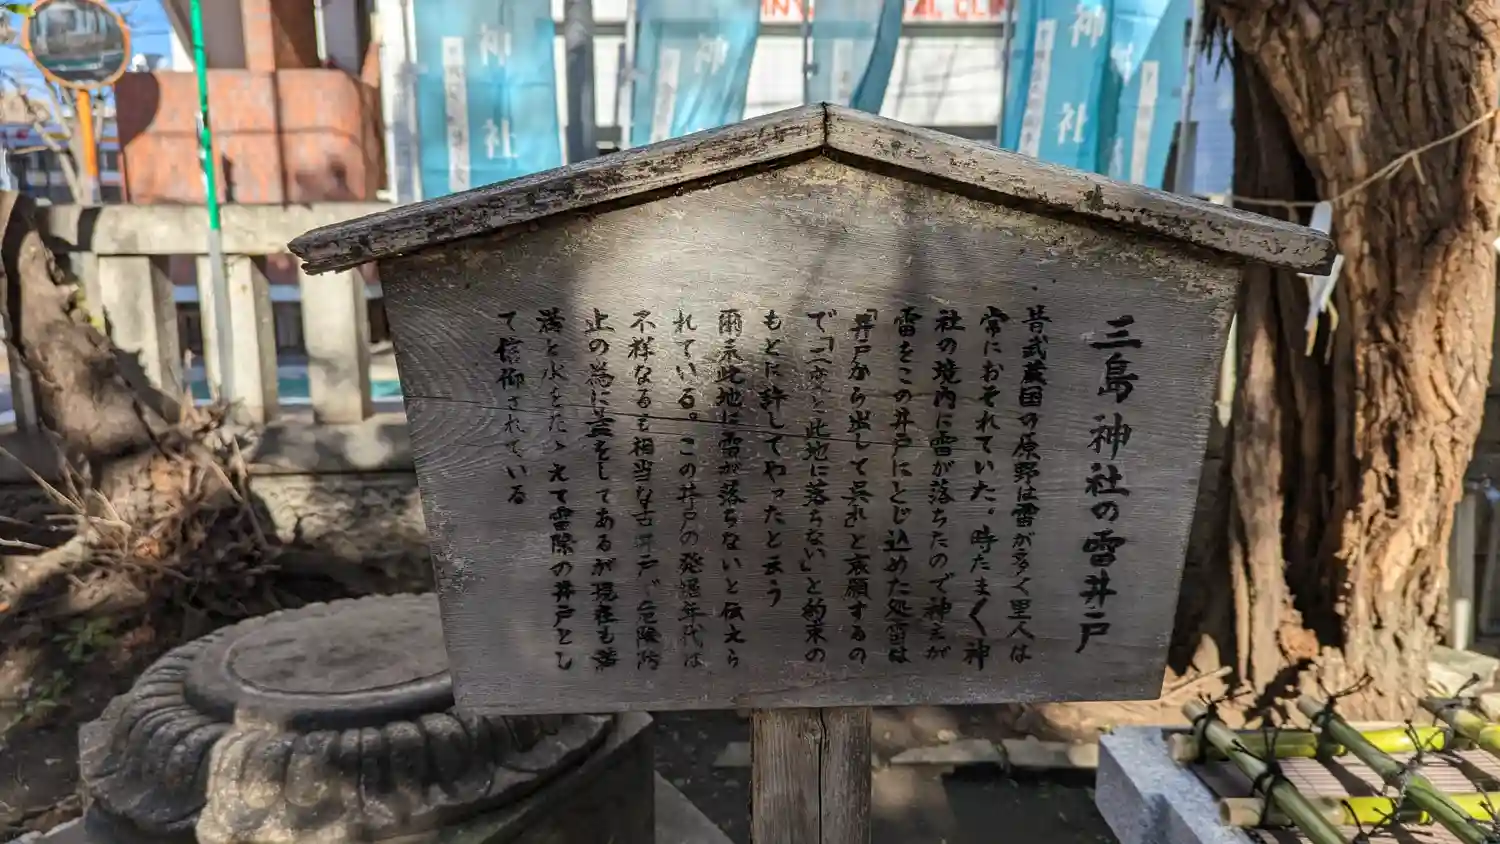 三島神社の雷井戸
昔武蔵国の原野は雷が多く里人は
常におそれていた。時たまく神
社の境内に雷が落ちたので神主が
雷をこの井戸にとじ込めた処雷は
「井戸から出して呉れ」と哀願するの
で「二度と此地に落ちない」と約束の
もとに許してやったと云う
爾来此地に雷が落ちないと伝えら
れている。この井戸の発堀年代は
不祥なるも相当な古井戸で危険防
止の為に蓋をしてあるが現在も満
満と水をたゝえて雷除の井戸とし
て信仰されている
神社
神
神社